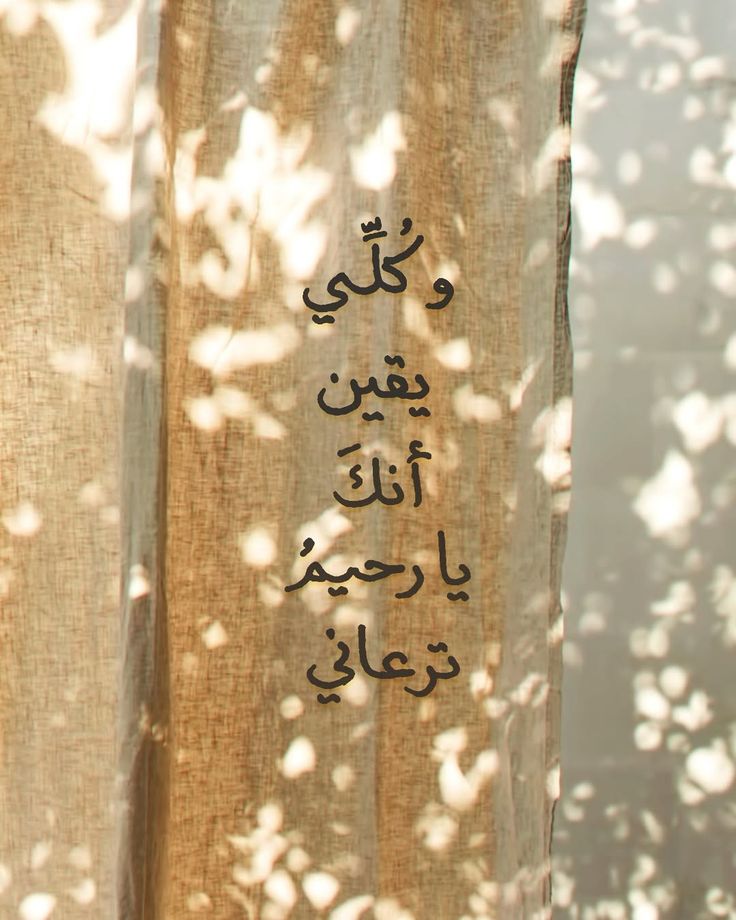 وكُلِّي
يقين
أنكَ
يا رحيمُ
ترعاني